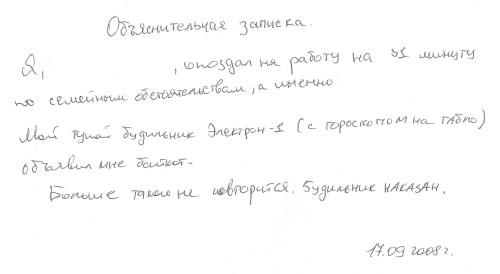 Объяснительная записка.
Я, , опоздал на работу на 31 минуту
по семейным обстоятельствам, а именно:
Мой тупой будильник Электрон-1 (с гороскопом на табло)
объявил мне бойкот.
Больше такого не повторится. Будильник НАКАЗАН.
17.09 2008г.